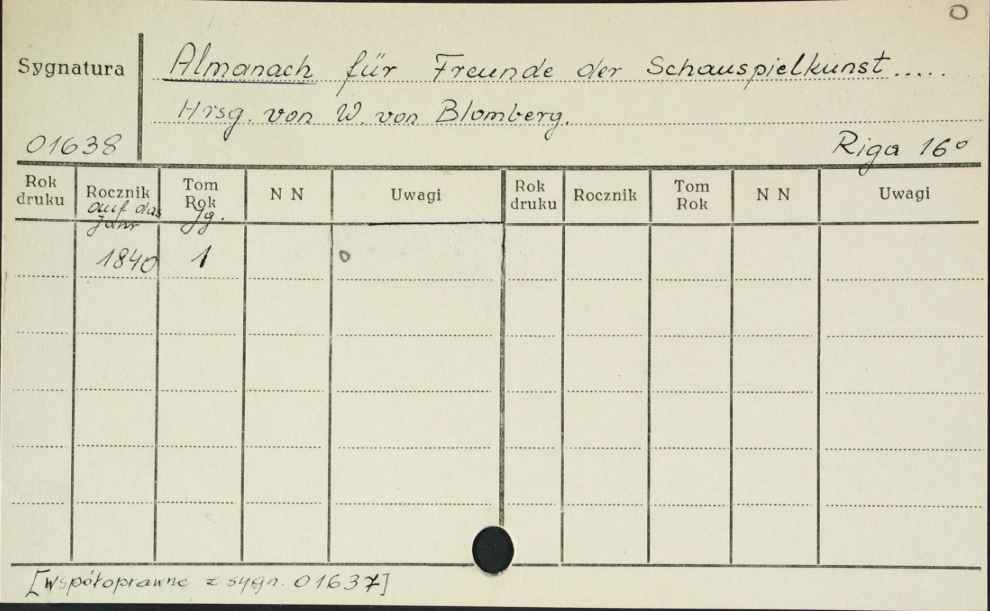 O
Sygnatura
Almanach für Freunde der Schauspielkunst.....
Hrsg. von W. von Blomberg.
01638
Riga 16°
Rok druku Rocznik Tom Rok N N Uwagi Rok druku Rocznik Tom Rok N N Uwagi
auf das Jahr Jg.
1840 1 o
[Współoprawne z sygn. 01637]